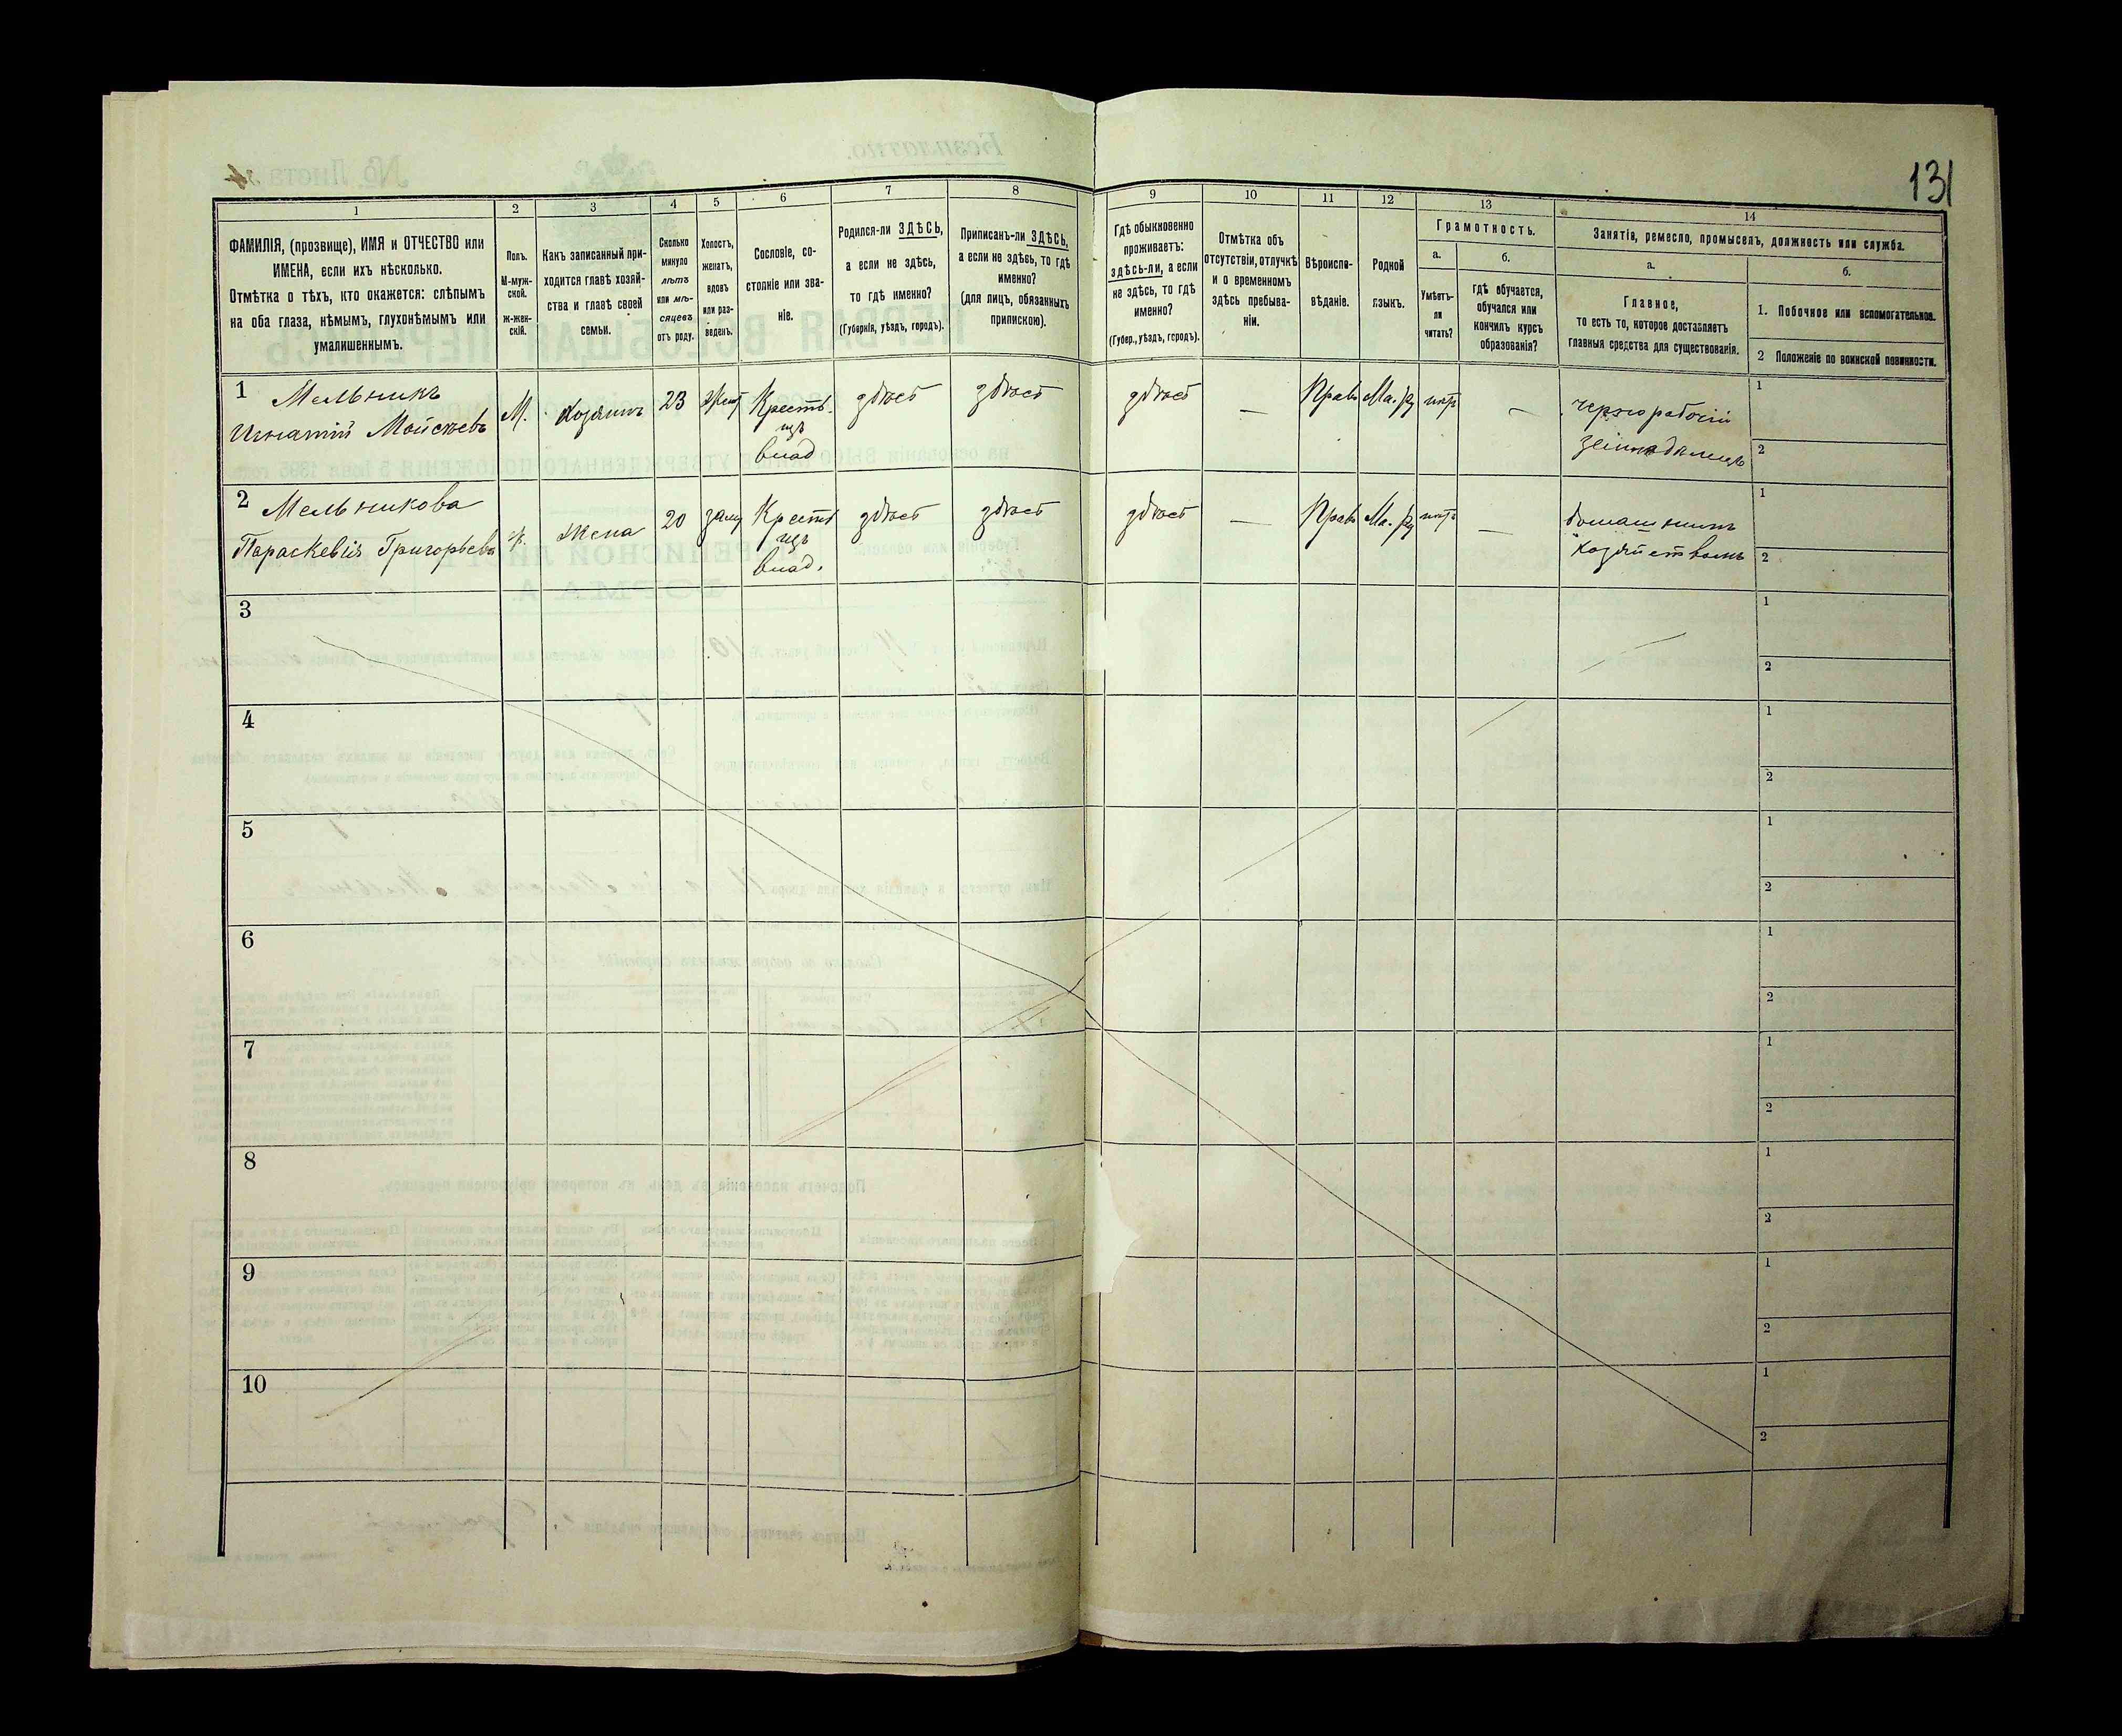 131
1
2
3
4
5
6
7
8
9
10
11
12
13
14
ФАМИЛІЯ, (прозвище), ИМЯ и ОТЧЕСТВО или
ИМЕНА, если ихъ нѣсколько.
Отмѣтка о тѣхъ, кто окажется: слѣпымъ
на оба глаза, нѣмымъ, глухонѣмымъ или
умалишеннымъ.
Полъ.
М-муж-
ской.
ж-жен-
скій.
Какъ записанный при-
ходится главѣ хозяй-
ства и главѣ своей
семьи.
Сколько
минуло
лѣтъ
или мѣ-
сяцевъ
отъ роду.
Холостъ,
женатъ,
вдовъ
или раз-
веденъ.
Сословіе, со-
стояніе или зва-
ніе.
Родился-ли ЗДѢСЬ,
а если не здѣсь,
то гдѣ именно?
(Губернія, уѣздъ, городъ).
Приписанъ-ли ЗДѢСЬ,
а если не здѣсь, то гдѣ
именно?
(для лицъ, обязанныхъ
припискою).
Гдѣ обыкновенно
проживаетъ:
здѣсь-ли, а если
не здѣсь, то гдѣ
именно?
(Губер., уѣздъ, городъ).
Отмѣтка объ
отсутствіи, отлучкѣ
и о временномъ
здѣсь пребыва-
ніи.
Вѣроиспо-
вѣданіе.
Родной
языкъ.
Грамотность.
а.
Умѣетъ-
ли
читать?
б.
гдѣ обучается,
обучался или
кончилъ курсъ
образованія?
Занятія, ремесло, промыселъ, должность или служба.
а.
Главное,
то есть то, которое доставляетъ
главныя средства для существованія.
б.
1. Побочное или вспомогательное.
2 Положеніе по воинской повинности.
1 Мельникъ
Игнатій Мойсеевъ
М.
хозяинъ
23
жен
Крестъ.
изъ
влад
здѣсь
здѣсь
здѣсь
—
Прав
Ма.ру
нѣтъ
—
чернорабочій
земледѣлецъ
1
2
2 Мельникова
Параскевія Григорьева
ж.
жена
20
зам
Крестъ
изъ
влад.
здѣсь
здѣсь
здѣсь
—
Прав
Ма.ру
нѣтъ
—
домашнимъ
хозяйствомъ
1
2
3
1
2
4
1
2
5
1
2
6
1
2
7
1
2
8
1
2
9
1
2
10
1
2